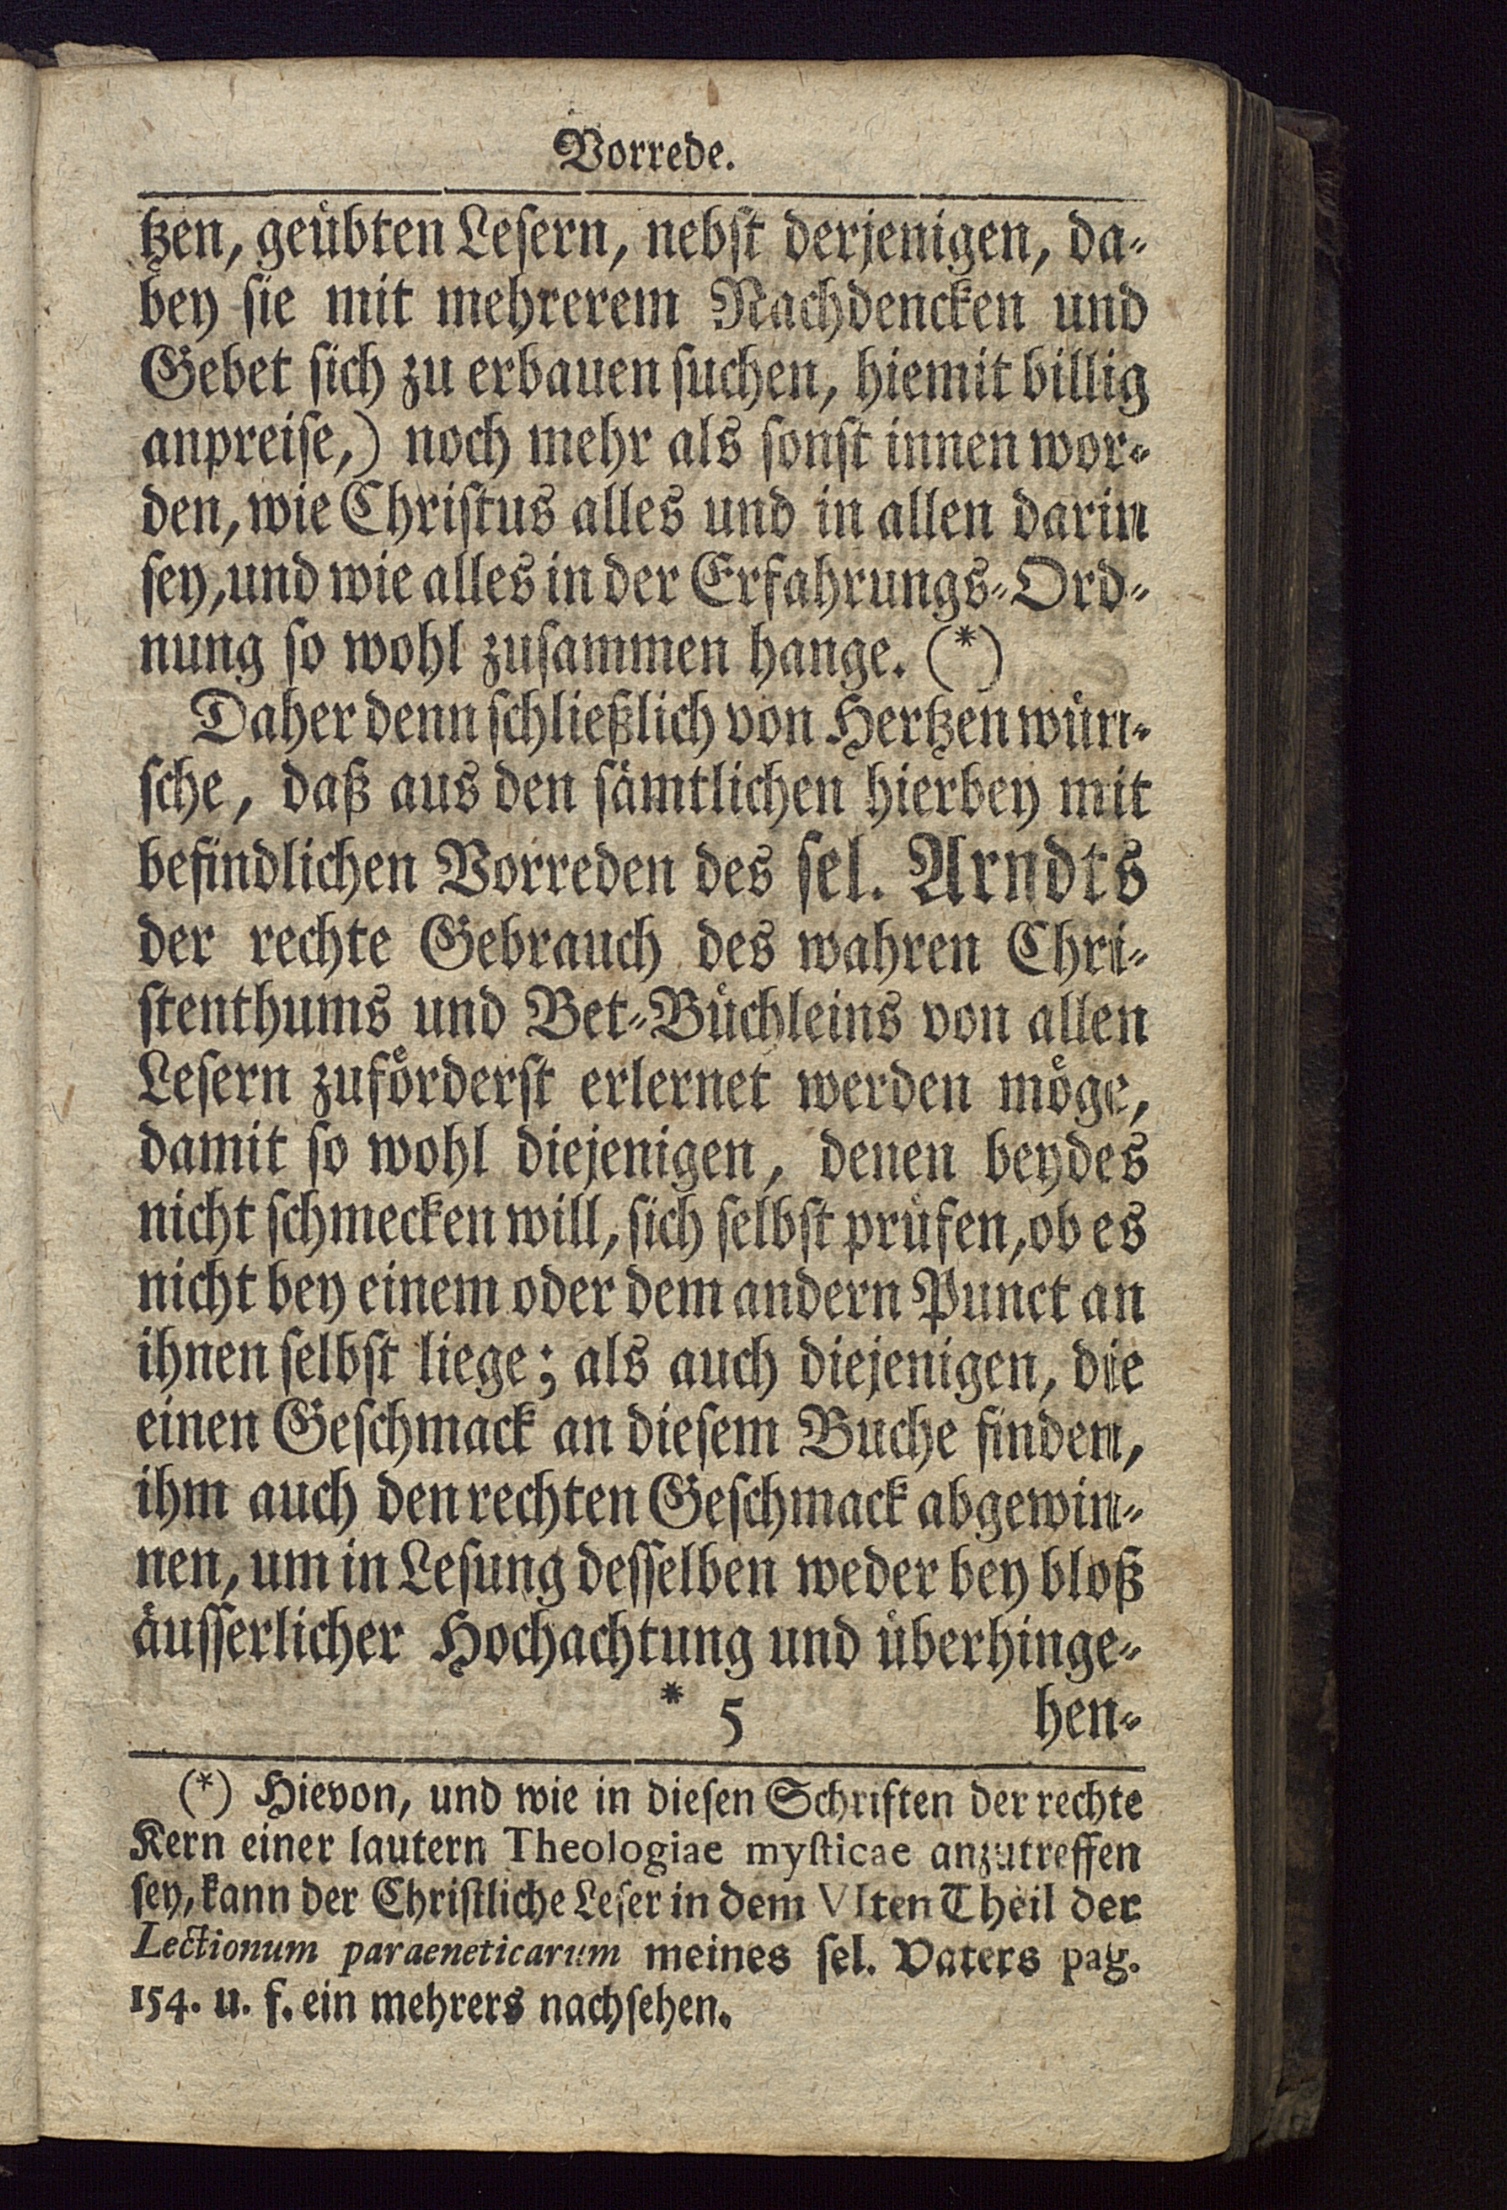 Vorrede.
tzen, geübten Lesern, nebst derjenigen, da-
bey sie mit mehrerem Nachdencken und
Gebet sich zu erbauen suchen, hiemit billig
anpreise,) noch mehr als sonst innen wor-
den, wie Christus alles und in allen darin
sey, und wie alles in der Erfahrungs-Ord-
nung so wohl zusammen hange. (*)
Daher denn schließlich von Hertzen wün-
sche, daß aus den sämtlichen hierbey mit
befindlichen Vorreden des sel. Arndts
der rechte Gebrauch des wahren Chri-
stenthums und Bet-Büchleins von allen
Lesern zuförderst erlernet werden möge,
damit so wohl diejenigen, denen beydes
nicht schmecken will, sich selbst prüfen, ob es
nicht bey einem oder dem andern Punct an
ihnen selbst liege; als auch diejenigen, die
einen Geschmack an diesem Buche finden,
ihm auch den rechten Geschmack abgewin-
nen, um in Lesung desselben weder bey bloß
äusserlicher Hochachtung und überhinge-
* 5 hen-
(*) Hievon, und wie in diesen Schriften der rechte
Kern einer lautern Theologiae mysticae anzutreffen
sey, kann der Christliche Leser in dem VIten Theil der
Lectionum paraeneticarum meines sel. Vaters pag.
154. u. f. ein mehrers nachsehen.